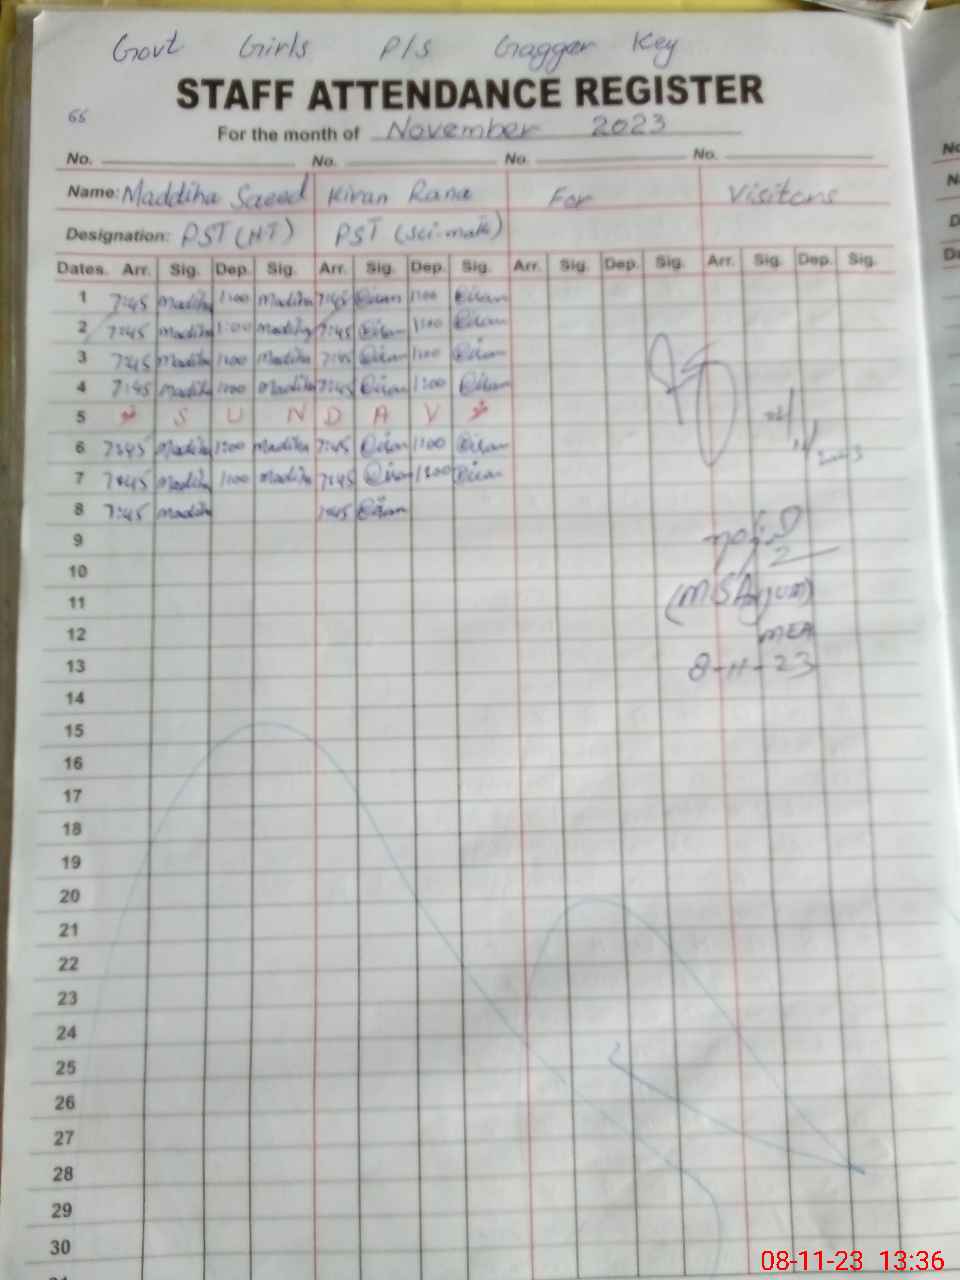 Govt Girls P/s Gagger Key
STAFF ATTENDANCE REGISTER
66
For the month of November 2023
No. No. No. No.
Name: Maddiha Saeed Kiran Rana For Visitors
Designation: PST (HT) PST (Sci-math)
Dates. Arr. Sig. Dep. Sig. Arr. Sig. Dep. Sig. Arr. Sig. Dep. Sig. Arr. Sig. Dep. Sig.
1 7:45 Madiha 1:00 Madiha 7:45 Kiran 1:00 Kiran
2 7:45 Madiha 1:00 Madiha 7:45 Kiran 1:00 Kiran
3 7:45 Madiha 1:00 Madiha 7:45 Kiran 1:00 Kiran
4 7:45 Madiha 1:00 Madiha 7:45 Kiran 1:00 Kiran
5 * S U N D A Y *
6 7:45 Madiha 1:00 Madiha 7:45 Kiran 1:00 Kiran
7 7:45 Madiha 1:00 Madiha 7:45 Kiran 1:00 Kiran
8 7:45 Madiha 7:45 Kiran
9
10
11
12
MEA
13
8-11-23
14
15
16
17
18
19
20
21
22
23
24
25
26
27
28
29
30
08-11-23 13:36